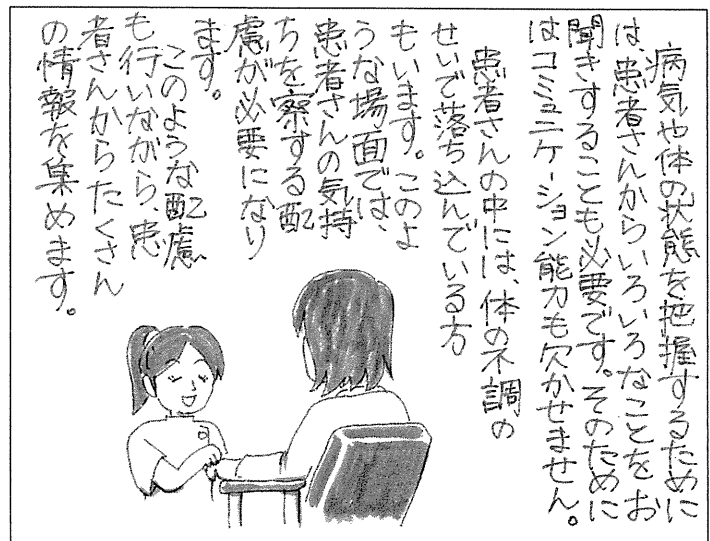 病気や体の状態を把握するために
は、患者さんからいろいろなことをお
聞きすることも必要です。そのために
はコミュニケーション能力も欠かせません。
患者さんの中には、体の不調の
せいで落ち込んでいる方
もいます。このよ
うな場面では、
患者さんの気持
ちを察する配
慮が必要になり
ます。
このような配慮
も行いながら、患
者さんからたくさん
の情報を集めます。